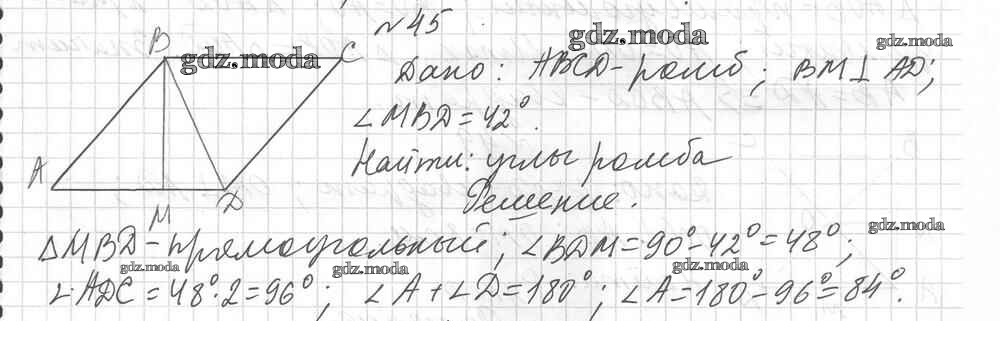 №45
B
C
gdz.moda
gdz.moda
gdz.moda
Дано: ABCD-ромб; BM⊥AD;
∠MBD=42°.
A
Найти: углы ромба
M
D
Решение.
gdz.moda
△MBD-прямоугольный; ∠BDM=90°-42°=48°;
gdz.moda
gdz.moda
gdz.moda
∠ADC=48°·2=96°; ∠A+∠D=180°; ∠A=180°-96°=84°.